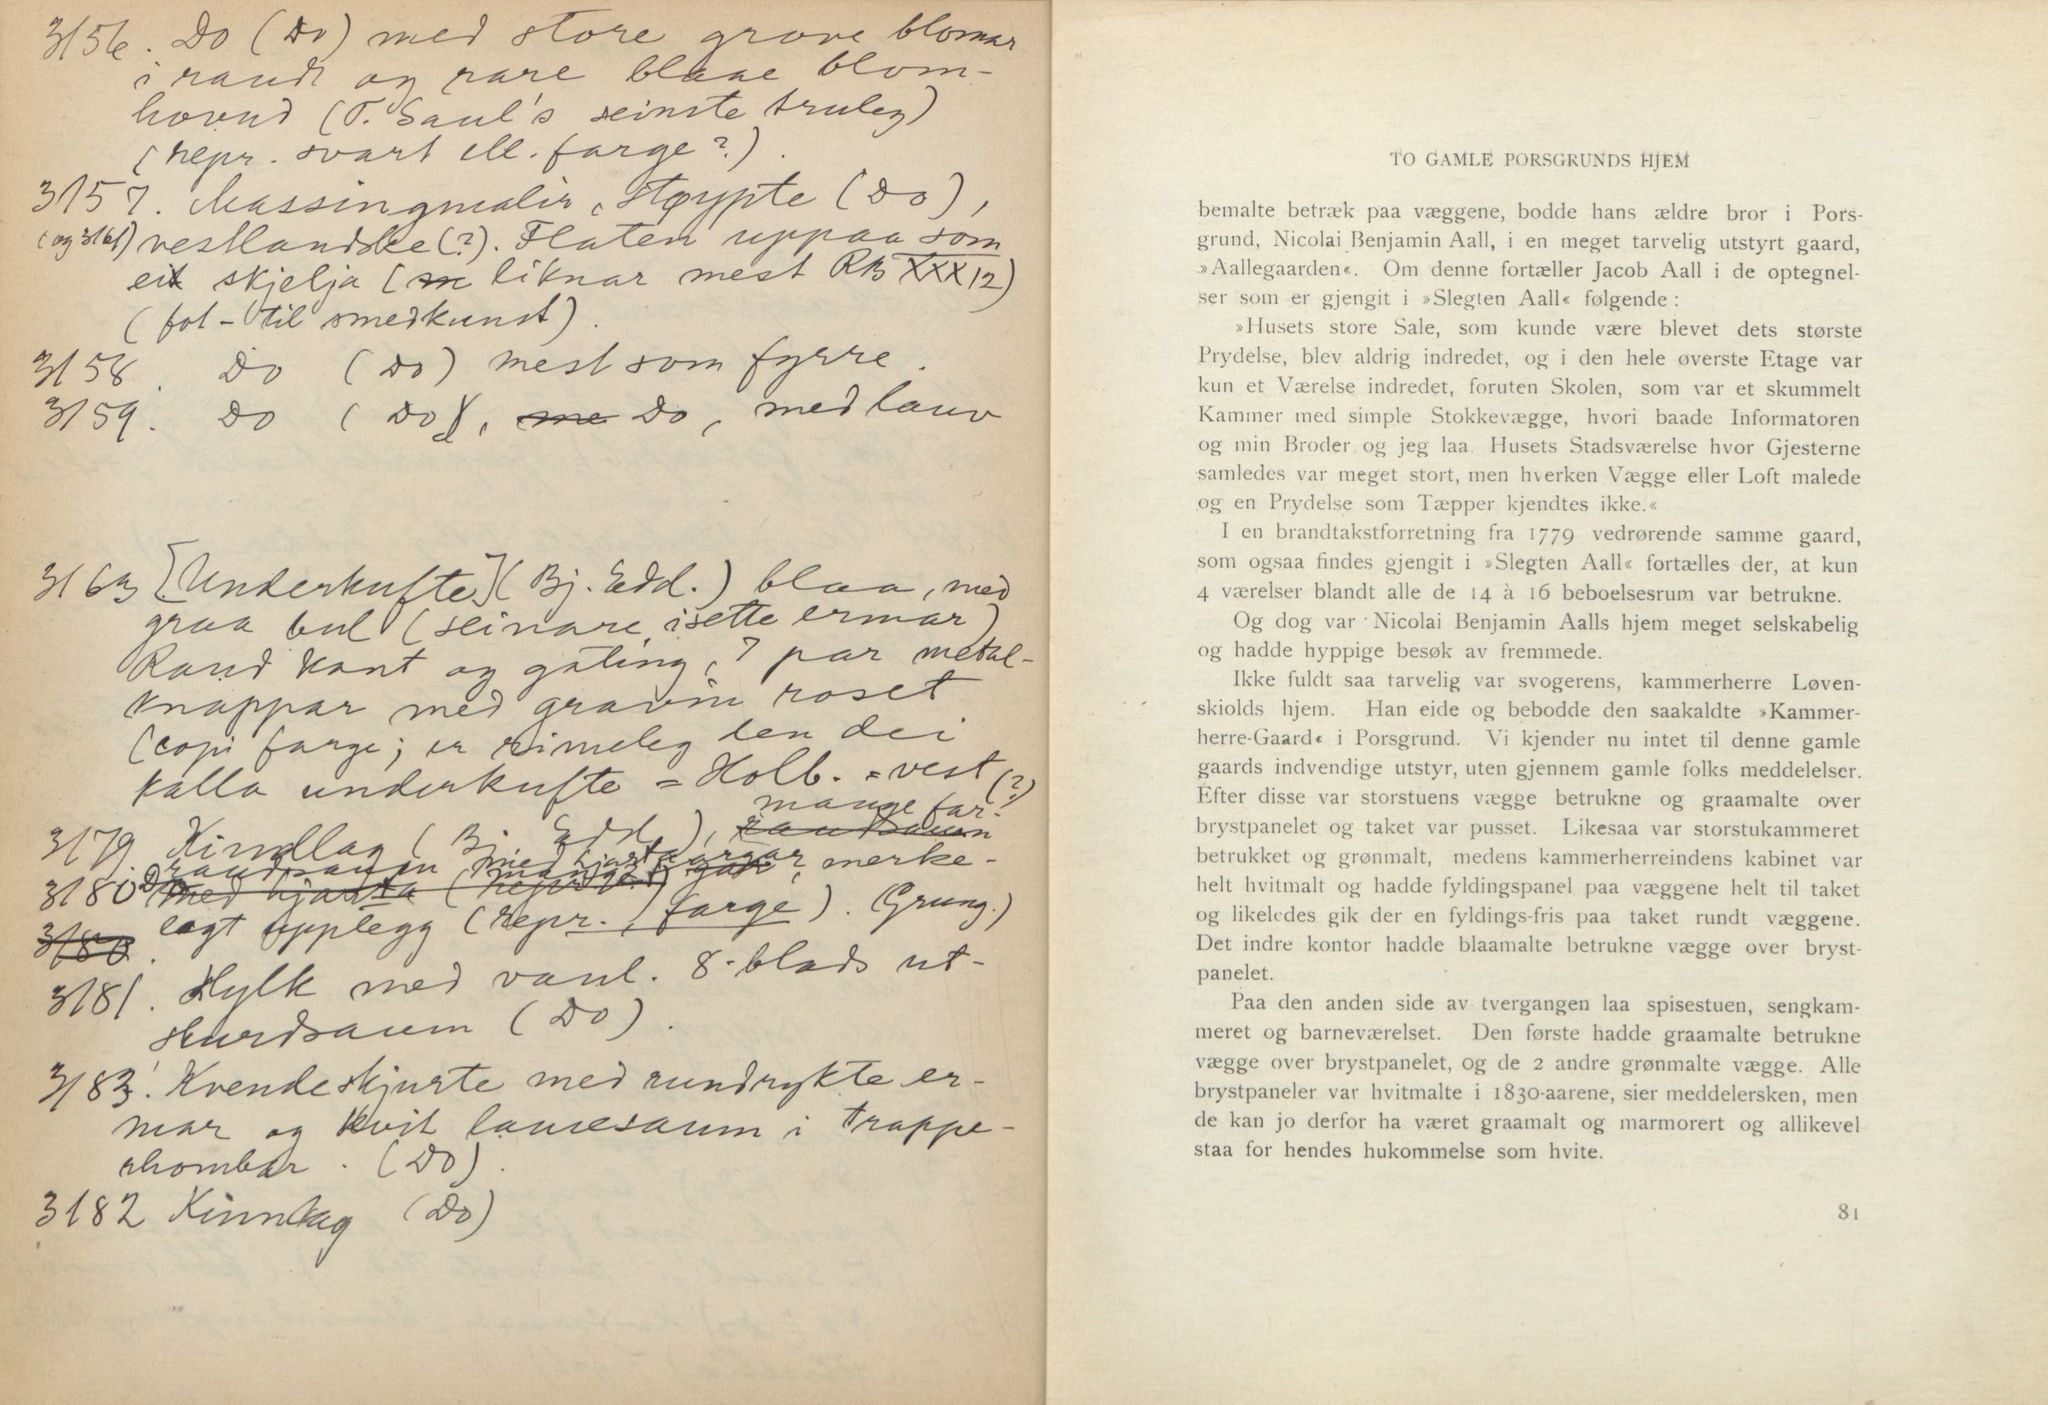 3156. Do (Do) med store grove blomar
i raudt og rare blaae blom-
hovud (T. Saul's seinste truleg)
(repr. svart ell. farge?).
3157. Massingmalir, støypte (Do),
(og 3161) vestlandske (?). Flaten uppaa som
eit skjelja (liknar mest RB XXX12)
(fot - til smedkunst).
3158. Do (Do) mest som fyrre.
3159. Do (Do), me Do, med lauv
3163 [Underkufte] (Bj. Edd.) blaa, med
graa bul (seinare isette ermar)
Raud kant og gating, 7 par metal-
knappar med gravin roset
(copi farge; er rimeleg den dei
kalla underkufte = Holb. = vest (?)
mange far-
3179. Kinnlag (Bj. Edd.), raudsaum
raudsaum med hjarta, merke-
3180 Do med hjarta
lagt upplegg (repr., farge). (Grung.)
3180.
3181. Hylk med vanl. 8-blads ut-
skurdsaum (Do).
3183. Kvendeskjurte med rundrykte er-
mar og kvit lauvesaum i trappe-
rhombar. (Do).
3182 Kinnlag (Do)
TO GAMLE PORSGRUNDS HJEM
bemalte betræk paa væggene, bodde hans ældre bror i Pors-
grund, Nicolai Benjamin Aall, i en meget tarvelig utstyrt gaard,
»Aallegaarden«. Om denne fortæller Jacob Aall i de optegnel-
ser som er gjengit i »Slegten Aall« følgende:
»Husets store Sale, som kunde være blevet dets største
Prydelse, blev aldrig indredet, og i den hele øverste Etage var
kun et Værelse indredet, foruten Skolen, som var et skummelt
Kammer med simple Stokkevægge, hvori baade Informatoren
og min Broder og jeg laa. Husets Stadsværelse hvor Gjesterne
samledes var meget stort, men hverken Vægge eller Loft malede
og en Prydelse som Tæpper kjendtes ikke.«
I en brandtakstforretning fra 1779 vedrørende samme gaard,
som ogsaa findes gjengit i »Slegten Aall« fortælles der, at kun
4 værelser blandt alle de 14 à 16 beboelsesrum var betrukne.
Og dog var Nicolai Benjamin Aalls hjem meget selskabelig
og hadde hyppige besøk av fremmede.
Ikke fuldt saa tarvelig var svogerens, kammerherre Løven-
skiolds hjem. Han eide og bebodde den saakaldte »Kammer-
herre-Gaard« i Porsgrund. Vi kjender nu intet til denne gamle
gaards indvendige utstyr, uten gjennem gamle folks meddelelser.
Efter disse var storstuens vægge betrukne og graamalte over
brystpanelet og taket var pusset. Likesaa var storstukammeret
betrukket og grønmalt, medens kammerherreindens kabinet var
helt hvitmalt og hadde fyldingspanel paa væggene helt til taket
og likeledes gik der en fyldings-fris paa taket rundt væggene.
Det indre kontor hadde blaamalte betrukne vægge over bryst-
panelet.
Paa den anden side av tvergangen laa spisestuen, sengkam-
meret og barneværelset. Den første hadde graamalte betrukne
vægge over brystpanelet, og de 2 andre grønmalte vægge. Alle
brystpaneler var hvitmalte i 1830-aarene, sier meddelersken, men
de kan jo derfor ha været graamalt og marmorert og allikevel
staa for hendes hukommelse som hvite.
81